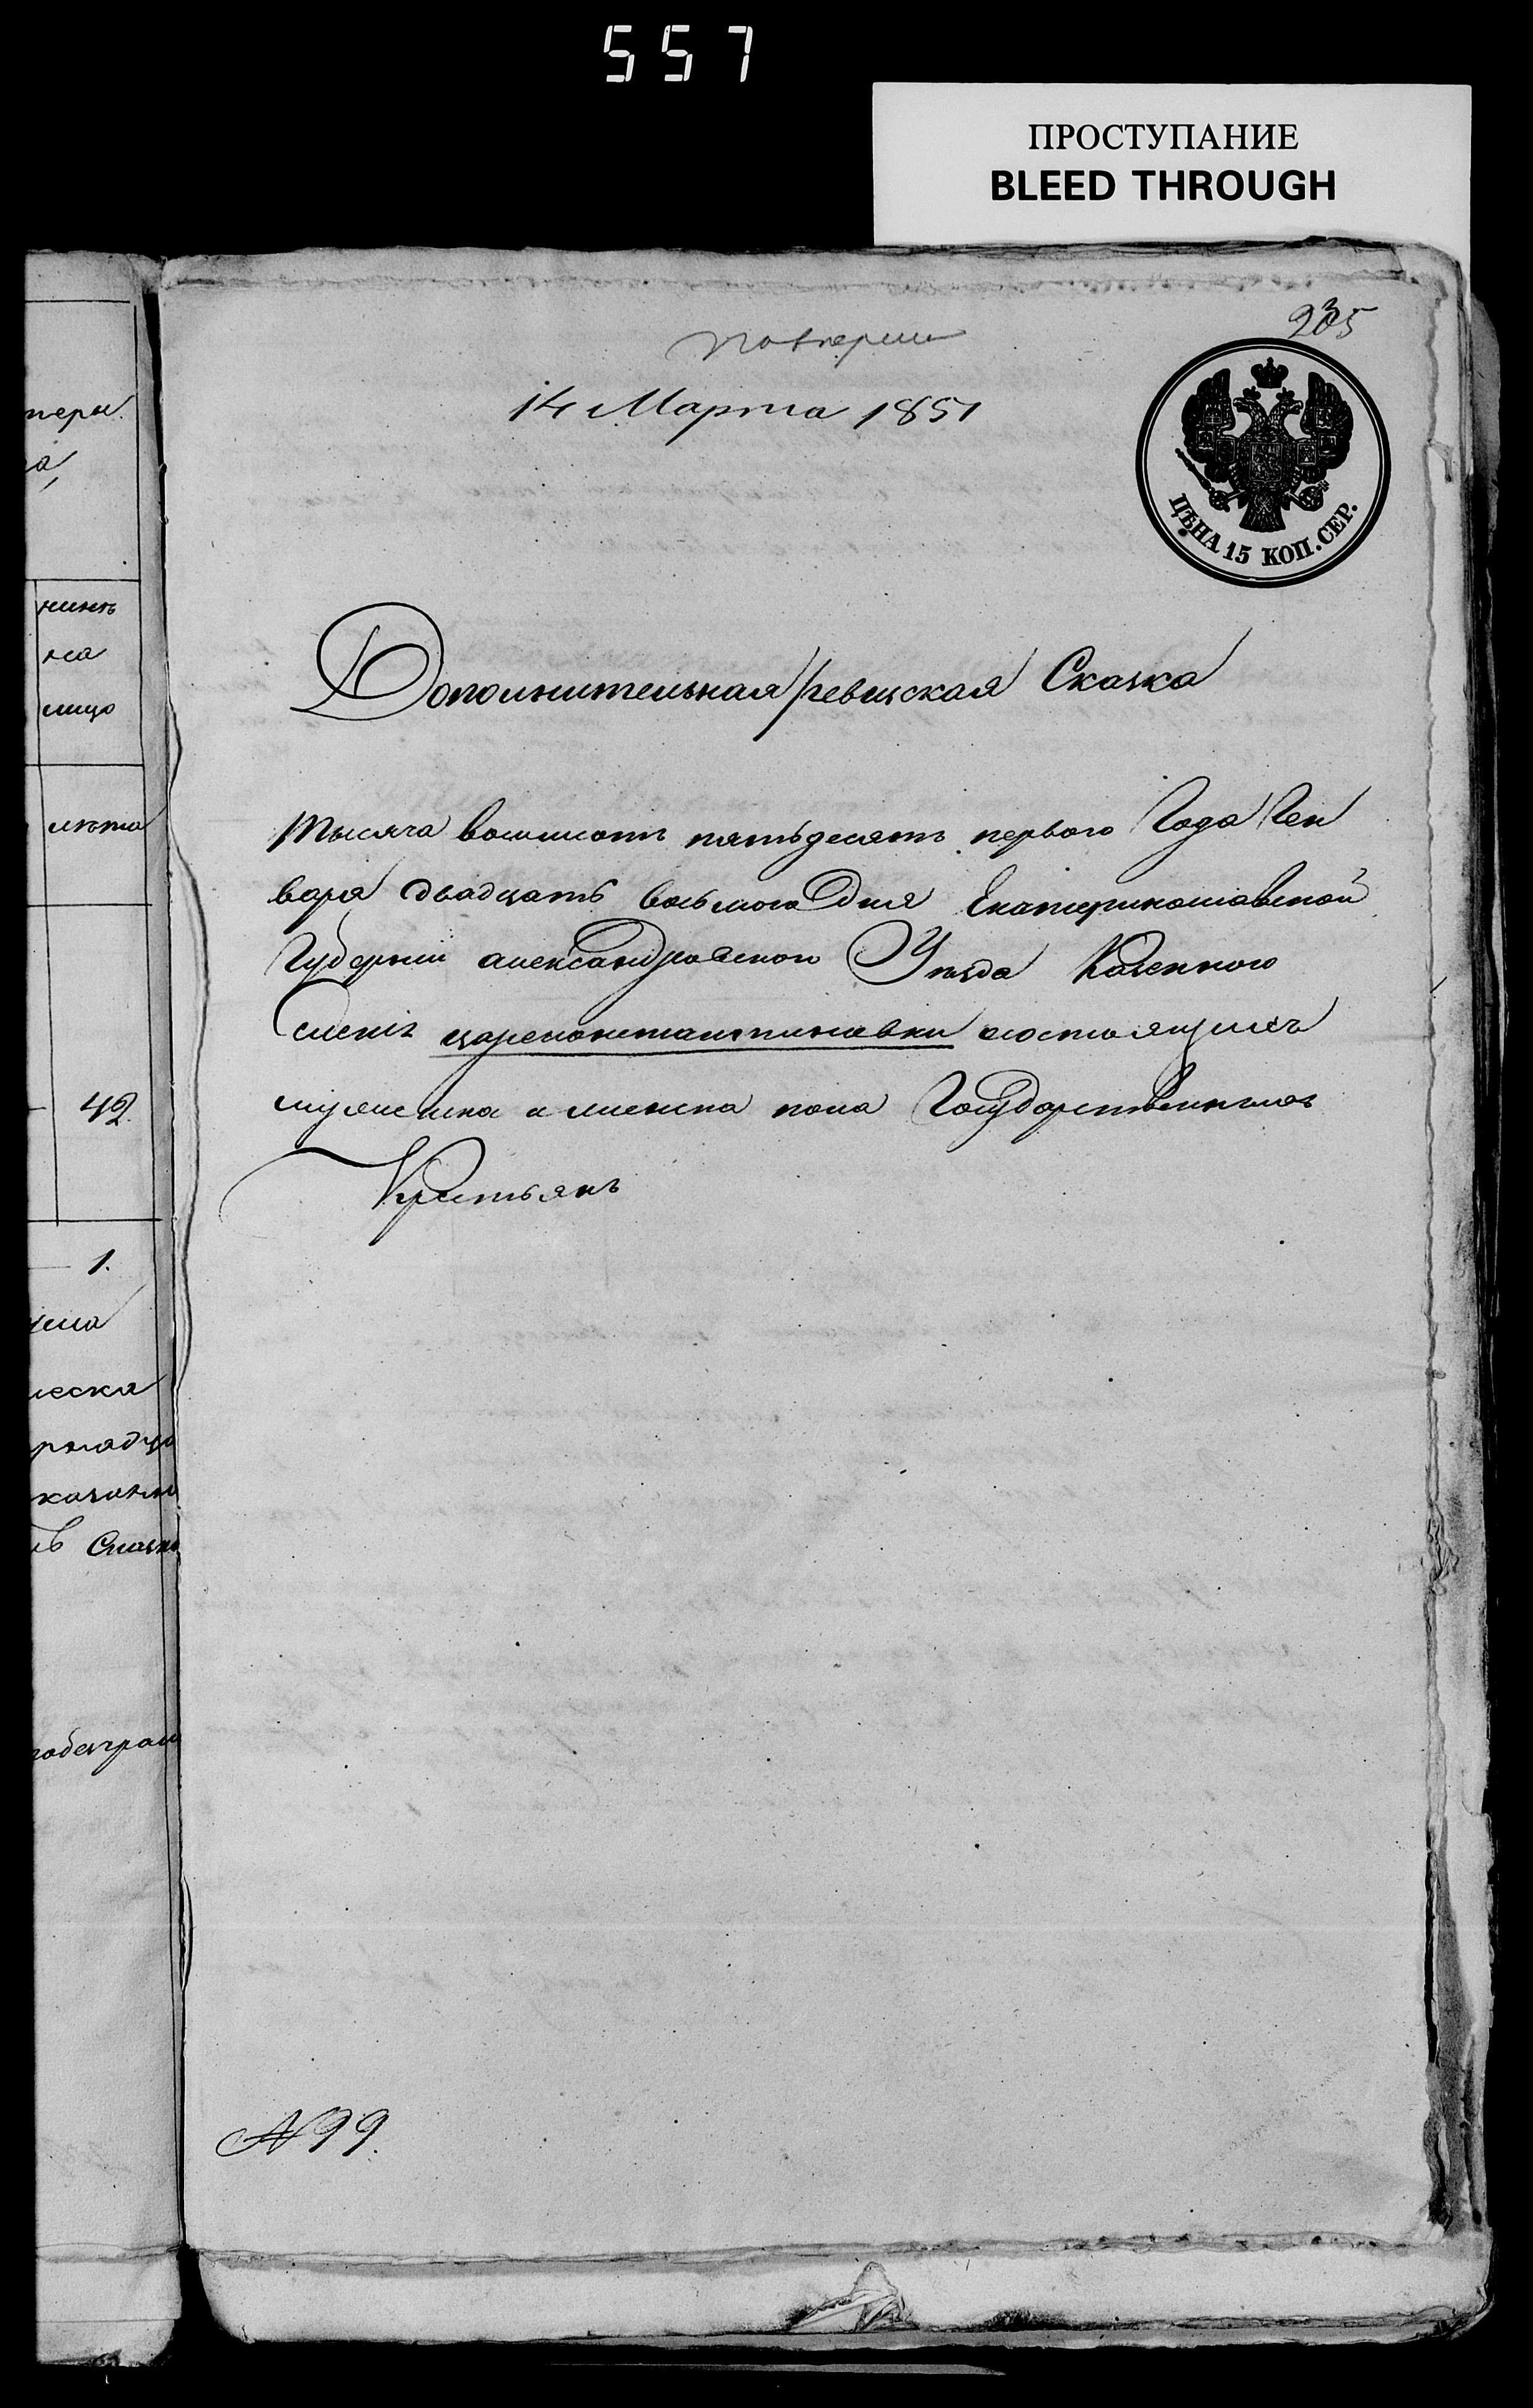 557
ПРОСТУПАНИЕ
BLEED THROUGH
235
14 Марта 1851
ЦѢНА 15 КОП. СЕР.
Дополнительная ревизская Сказка
Тысяча восемьсотъ пятьдесятъ первого Года Ген
варя двадцать восьмого дня Екатеринославской
Губерніи александровского Уѣзда Казенного
Селенія цареконстантиновки состоящихъ
мужеска и женска пола Государственныхъ
Крестьянъ
N 99.
нинѣ
на
лицо
лѣта
42.
1.